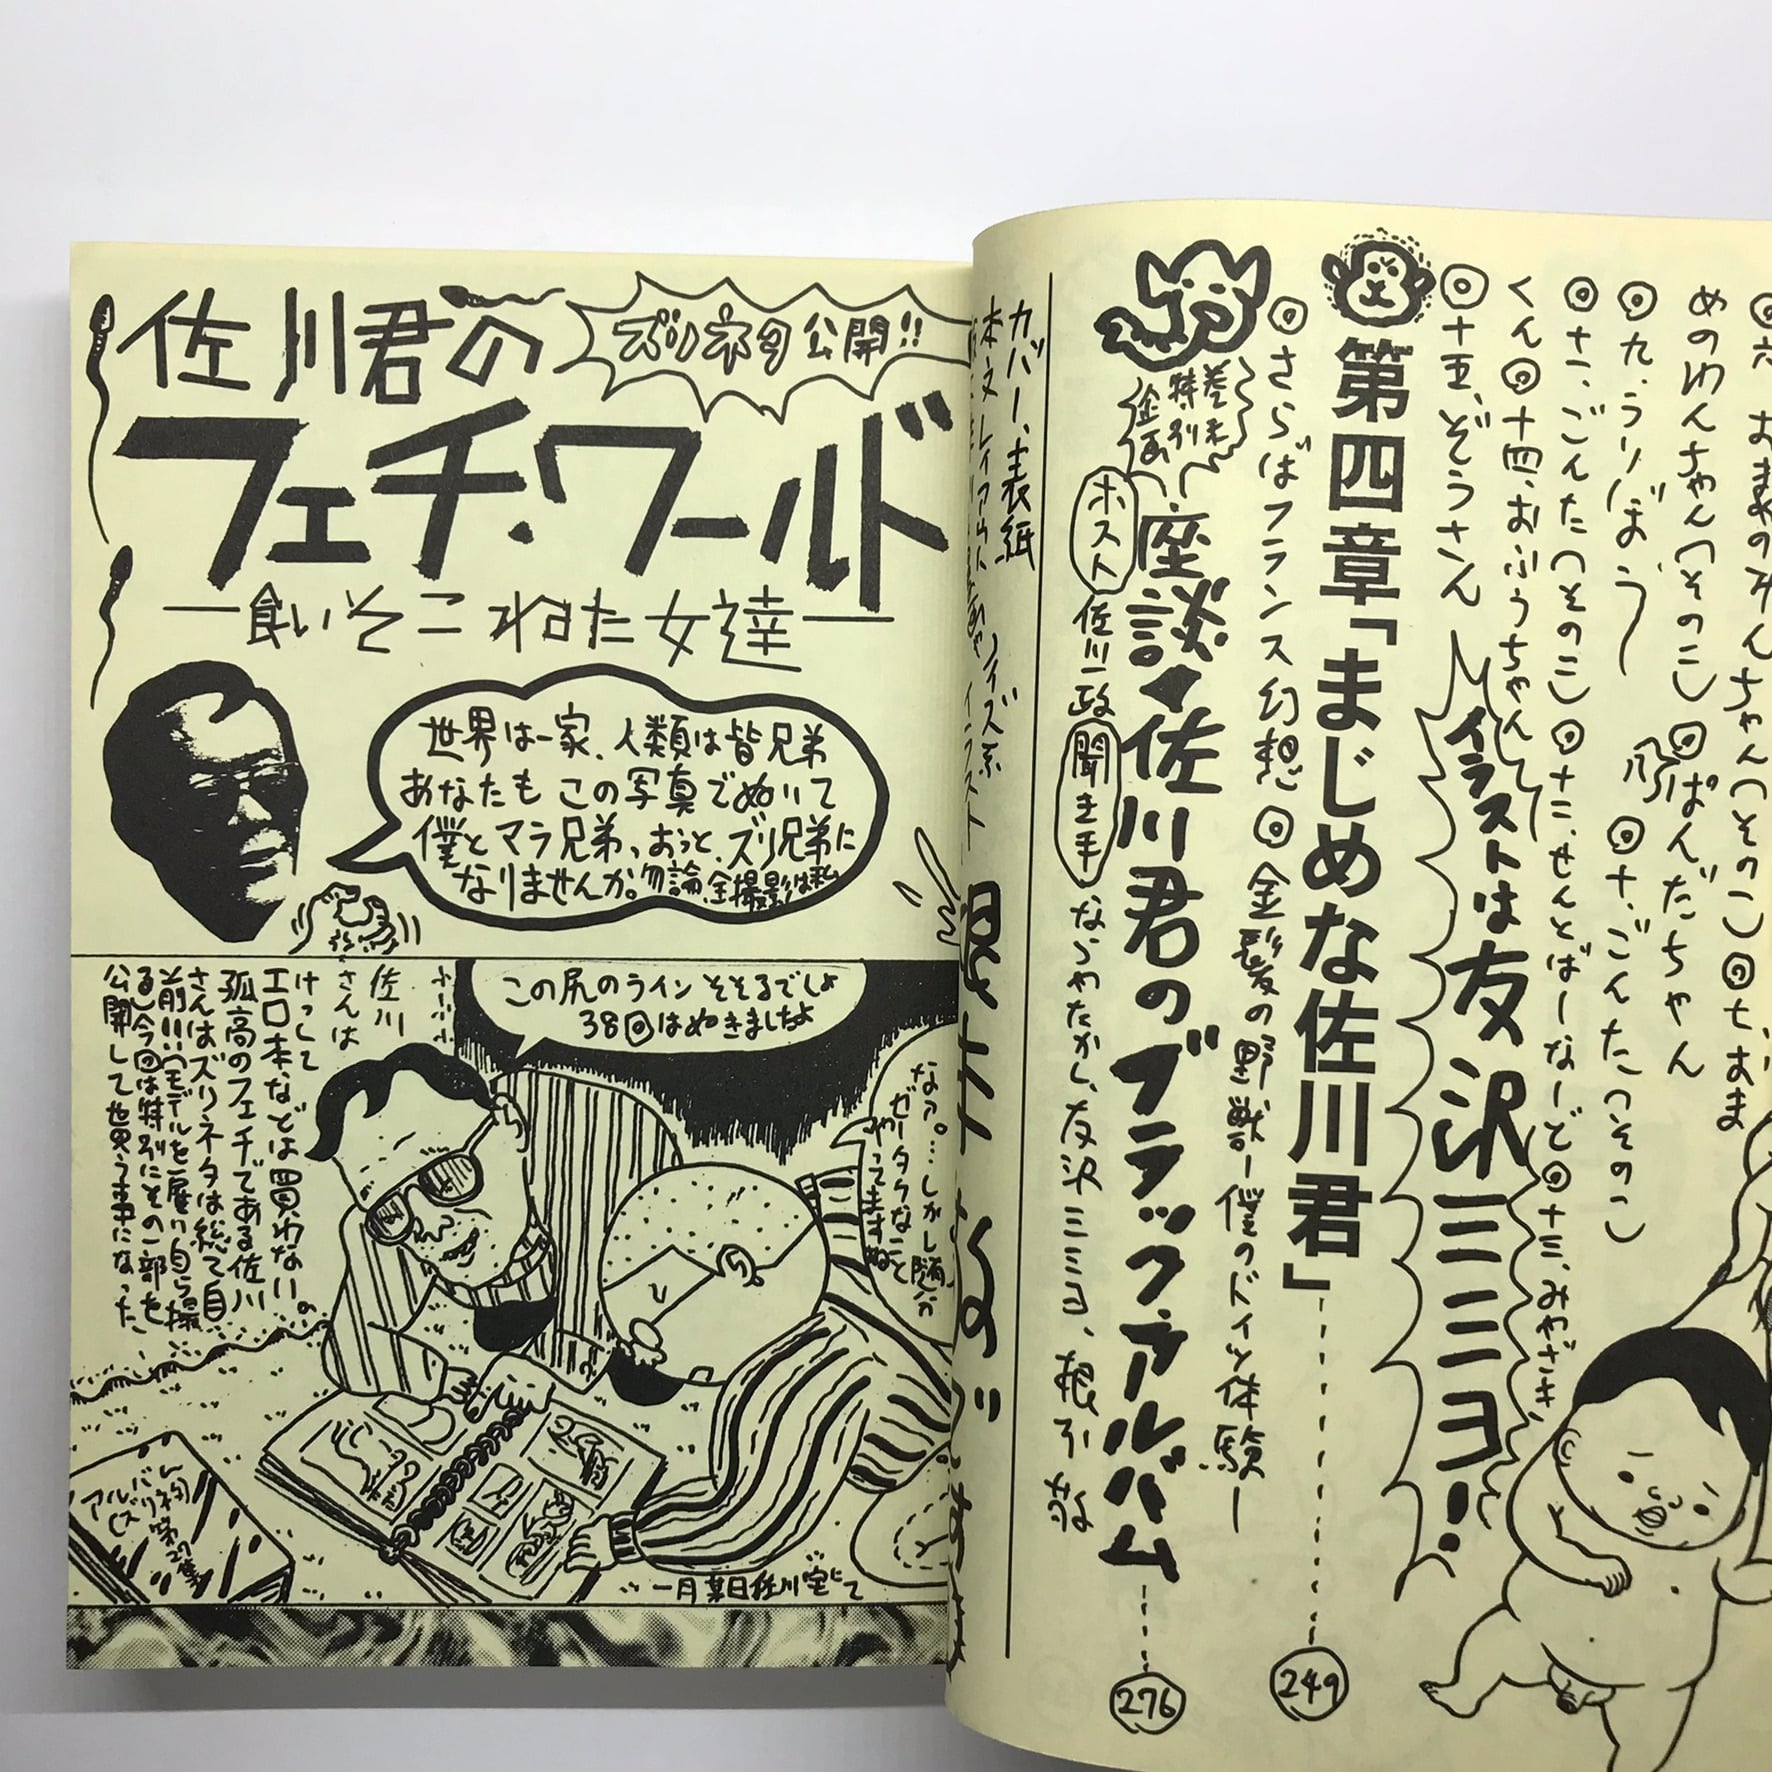 佐川君の
ズリネタ公開!!
フェチ・ワールド
―食いそこねた女達―
世界は一家、人類は皆兄弟
あなたも この写真でぬいて
僕とマラ兄弟、おっと、ズリ兄弟に
なりませんか。勿論、全撮影は私
この尻のライン そそるでしょ
38回はぬきましたよ
なァ。…しかし随分
ぜータクなこと
やってますね
佐川
さんは
けっして
エロ本などは買わない。
孤高のフェチである佐川
さんはズリネタは総て自
前!!(モデルを雇い自ら撮
る)今回は特別にその一部を
公開して世界う事になった。
アルバム
第27集
一月某日佐川宅にて
めのわんちゃん(その二)◎七、おま
◎九、うりぼう
◎八、ぱんだちゃん
◎十、ごんた(その一)
◎十一、ごんた(その二)◎十二、せんとばーなーど◎十三、みやざき
くん◎十四、おふうちゃん
◎十五、ぞうさん
イラストは友沢ミミヨ!
第四章「まじめな佐川君」
249
◎さらばフランス幻想 ◎金髪の野獣―僕のドイツ体験―
巻末
特別
企画
座談・佐川君のブラック・アルバム
276
ホスト 佐川一政 聞き手 ならやたかし、友沢ミミヨ、根本敬
カバー、表紙
本文レイアウト